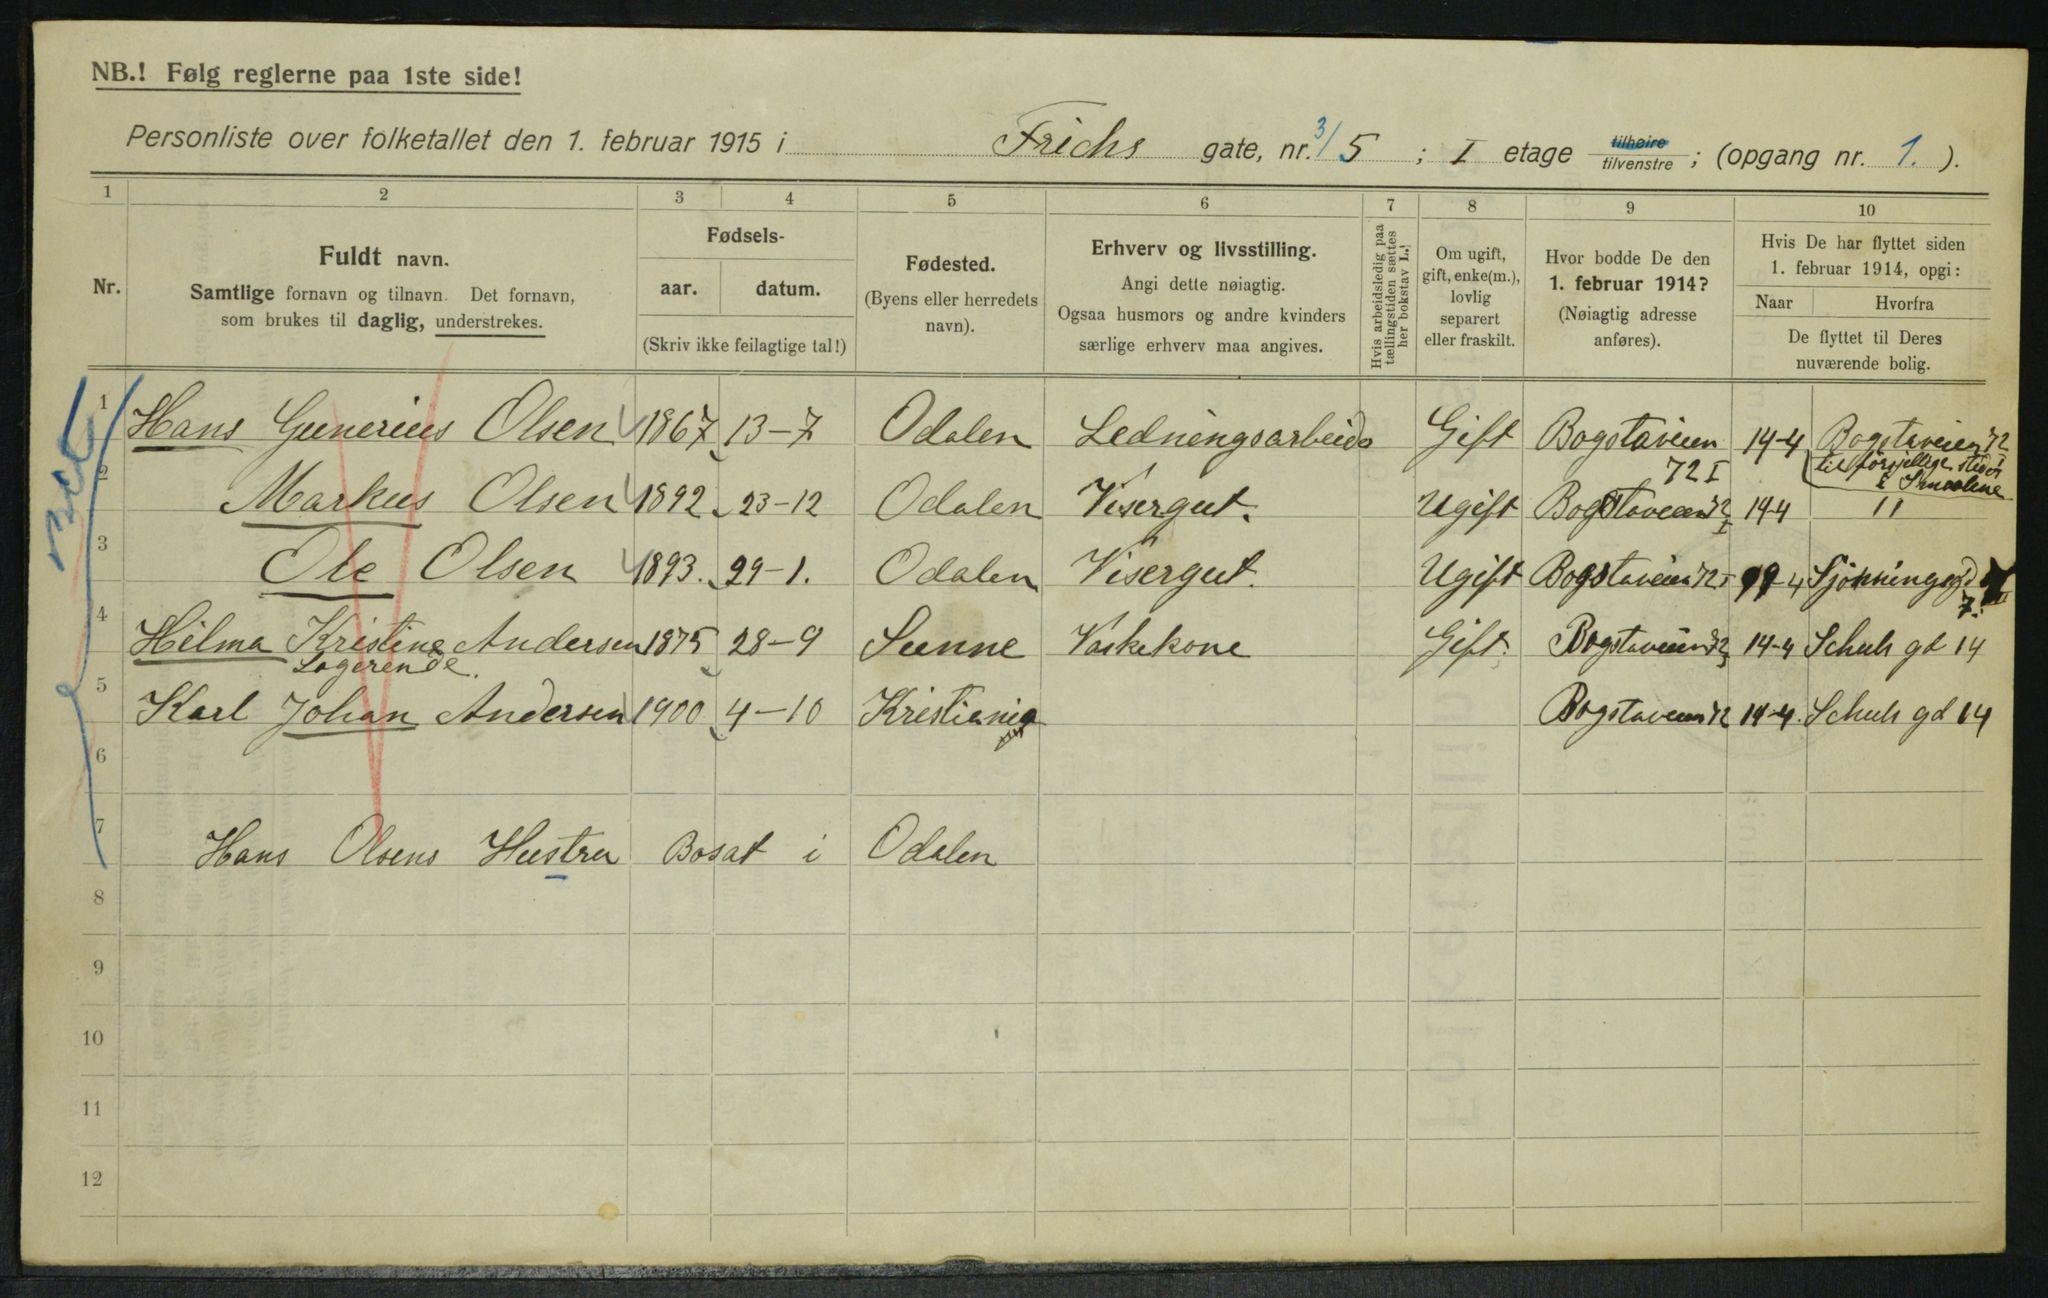 NB.! Følg reglerne paa 1ste side!
Personliste over folketallet den 1. februar 1915 i Frichs gate, nr. 3/5 ; I etage tilhøire tilvenstre ; (opgang nr. 1. ).
1 2 3 4 5 6 7 8 9 10
Nr.
Fuldt navn.
Samtlige fornavn og tilnavn. Det fornavn,
som brukes til daglig, understrekes.
Fødsels-
aar. datum.
(Skriv ikke feilagtige tal!)
Fødested.
(Byens eller herredets
navn).
Erhverv og livsstilling.
Angi dette nøiagtig.
Ogsaa husmors og andre kvinders
særlige erhverv maa angives.
Hvis arbeidsledig paa
tællingstiden sættes
her bokstav L.!
Om ugift,
gift, enke(m.),
lovlig
separert
eller fraskilt.
Hvor bodde De den
1. februar 1914?
(Nøiagtig adresse
anføres).
Hvis De har flyttet siden
1. februar 1914, opgi:
Naar Hvorfra
De flyttet til Deres
nuværende bolig.
1 Hans Gunerius Olsen 1867 13-7 Odalen Ledningsarbeide Gift Bogstaveien 72 I 14-4 Bogstaveien 72 I
2 Markus Olsen 1892 23-12 Odalen Visergut. Ugift Bogstaveien 72 I 14-4 "
3 Ole Olsen 1893. 29-1. Odalen Visergut. Ugift Bogstaveien 72 I 4
4 Hilma Kristine Andersen 1875 28-9 Sunne Vaskekone Gift. Bogstaveien 72 14-4 Schuls gd 14
Logerende.
5 Karl Johan Andersen 1900 4-10 Kristiania Bogstaveien 72 14-4. Schuls gd 14
6
7 Hans Olsens Hustru Bosat i Odalen
8
9
10
11
12